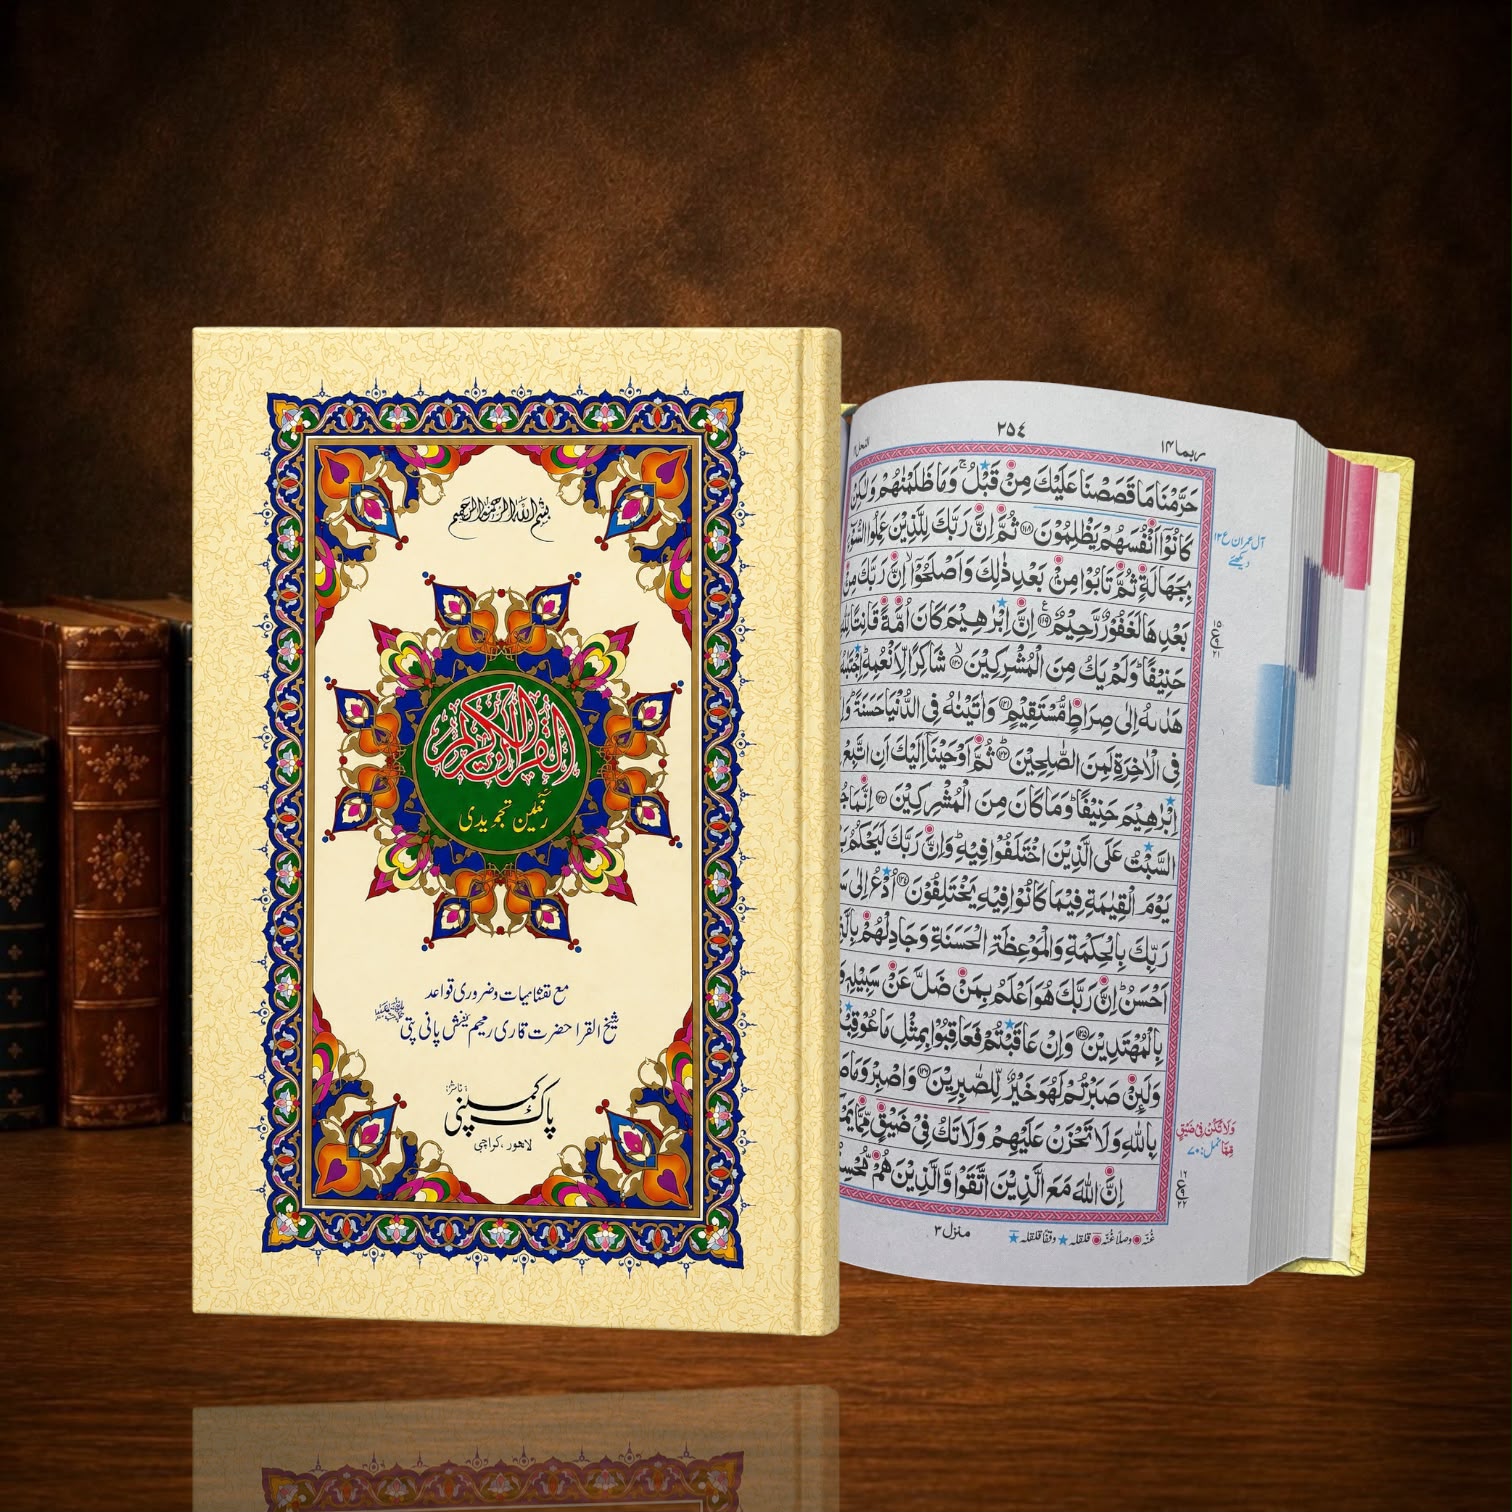 بسم اللہ الرحمن الرحیم
القرآن الکریم
رنگین تجویدی
مع نقشہ متشابہات وضروری قواعد
شیخ القرا حضرت قاری رحیم بخش پانی پتی
ناشر:
پاک کمپنی
لاہور، کراچی
ربما ١٤
٢٥٤
النحل
حَرَّمْنَا مَا قَصَصْنَا عَلَيْكَ مِنْ قَبْلُ ۚ وَمَا ظَلَمْنٰهُمْ وَلٰكِنْ
كَانُوْٓا اَنْفُسَهُمْ يَظْلِمُوْنَ ﴿١١٨﴾ ثُمَّ اِنَّ رَبَّكَ لِلَّذِيْنَ عَمِلُوا السُّوْٓءَ
بِجَهَالَةٍ ثُمَّ تَابُوْا مِنْۢ بَعْدِ ذٰلِكَ وَاَصْلَحُوْٓا ۙ اِنَّ رَبَّكَ مِنْۢ
بَعْدِهَا لَغَفُوْرٌ رَّحِيْمٌ ﴿١١٩﴾ اِنَّ اِبْرٰهِيْمَ كَانَ اُمَّةً قَانِتًا لِّلّٰهِ
حَنِيْفًا ؕ وَلَمْ يَكُ مِنَ الْمُشْرِكِيْنَ ﴿١٢٠﴾ ۙ شَاكِرًا لِّاَنْعُمِهٖ ؕ
هَدٰىهُ اِلٰى صِرَاطٍ مُّسْتَقِيْمٍ ﴿١٢١﴾ وَاٰتَيْنٰهُ فِى الدُّنْيَا حَسَنَةً ؕ
فِى الْاٰخِرَةِ لَمِنَ الصّٰلِحِيْنَ ﴿١٢٢﴾ ؕ ثُمَّ اَوْحَيْنَآ اِلَيْكَ اَنِ اتَّبِعْ
اِبْرٰهِيْمَ حَنِيْفًا ؕ وَمَا كَانَ مِنَ الْمُشْرِكِيْنَ ﴿١٢٣﴾ اِنَّمَا
السَّبْتُ عَلَى الَّذِيْنَ اخْتَلَفُوْا فِيْهِ ؕ وَاِنَّ رَبَّكَ لَيَحْكُمُ
يَوْمَ الْقِيٰمَةِ فِيْمَا كَانُوْا فِيْهِ يَخْتَلِفُوْنَ ﴿١٢٤﴾ اُدْعُ اِلٰى
رَبِّكَ بِالْحِكْمَةِ وَالْمَوْعِظَةِ الْحَسَنَةِ وَجَادِلْهُمْ
اَحْسَنُ ؕ اِنَّ رَبَّكَ هُوَ اَعْلَمُ بِمَنْ ضَلَّ عَنْ سَبِيْلِهٖ
بِالْمُهْتَدِيْنَ ﴿١٢٥﴾ وَاِنْ عَاقَبْتُمْ فَعَاقِبُوْا بِمِثْلِ مَا
وَلَئِنْ صَبَرْتُمْ لَهُوَ خَيْرٌ لِّلصّٰبِرِيْنَ ﴿١٢٦﴾ وَاصْبِرْ وَمَا
بِاللّٰهِ وَلَا تَحْزَنْ عَلَيْهِمْ وَلَا تَكُ فِىْ ضَيْقٍ مِّمَّا
اِنَّ اللّٰهَ مَعَ الَّذِيْنَ اتَّقَوْا وَّالَّذِيْنَ هُمْ
آل عمران ع ١٢
دیکھئے
١٥
ع
٢١
وَلَا تَكُنْ فِىْ ضَيْقٍ
مِّمَّا نمل: ٧٠
١٦
ع
٢٢
منزل ٣
غُنّه وصلًا غُنّه قلقله وقفًا قلقله